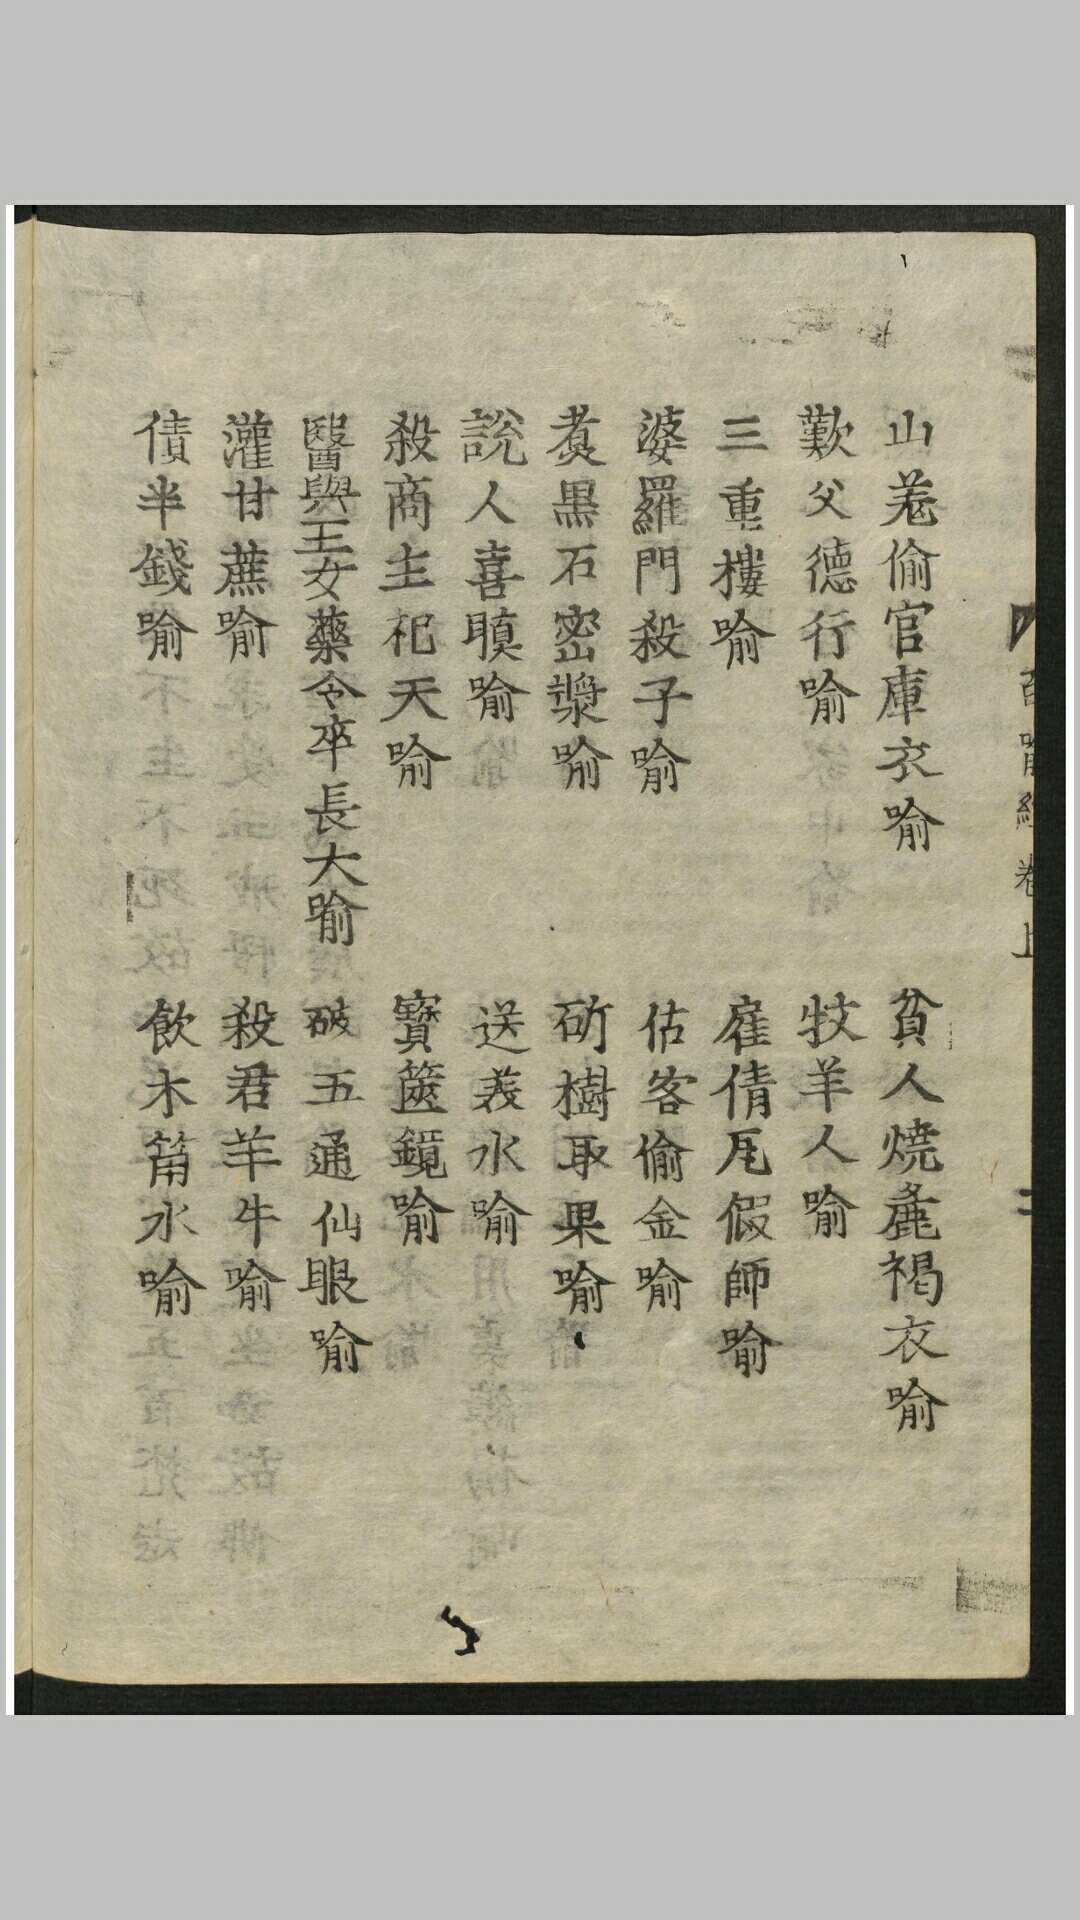 百喻經卷上 二
山羗偷官庫衣喻 貧人燒麁褐衣喻
歎父德行喻 牧羊人喻
三重樓喻 雇倩瓦假師喻
婆羅門殺子喻 估客偷金喻
煑黒石密漿喻 斫樹取果喻
說人喜瞋喻 送羙水喻
殺商主祀天喻 寳篋鏡喻
醫與王女藥令卒長大喻 破五通仙眼喻
灌甘蔗喻 殺君羊牛喻
債半錢喻 飲木筩水喻